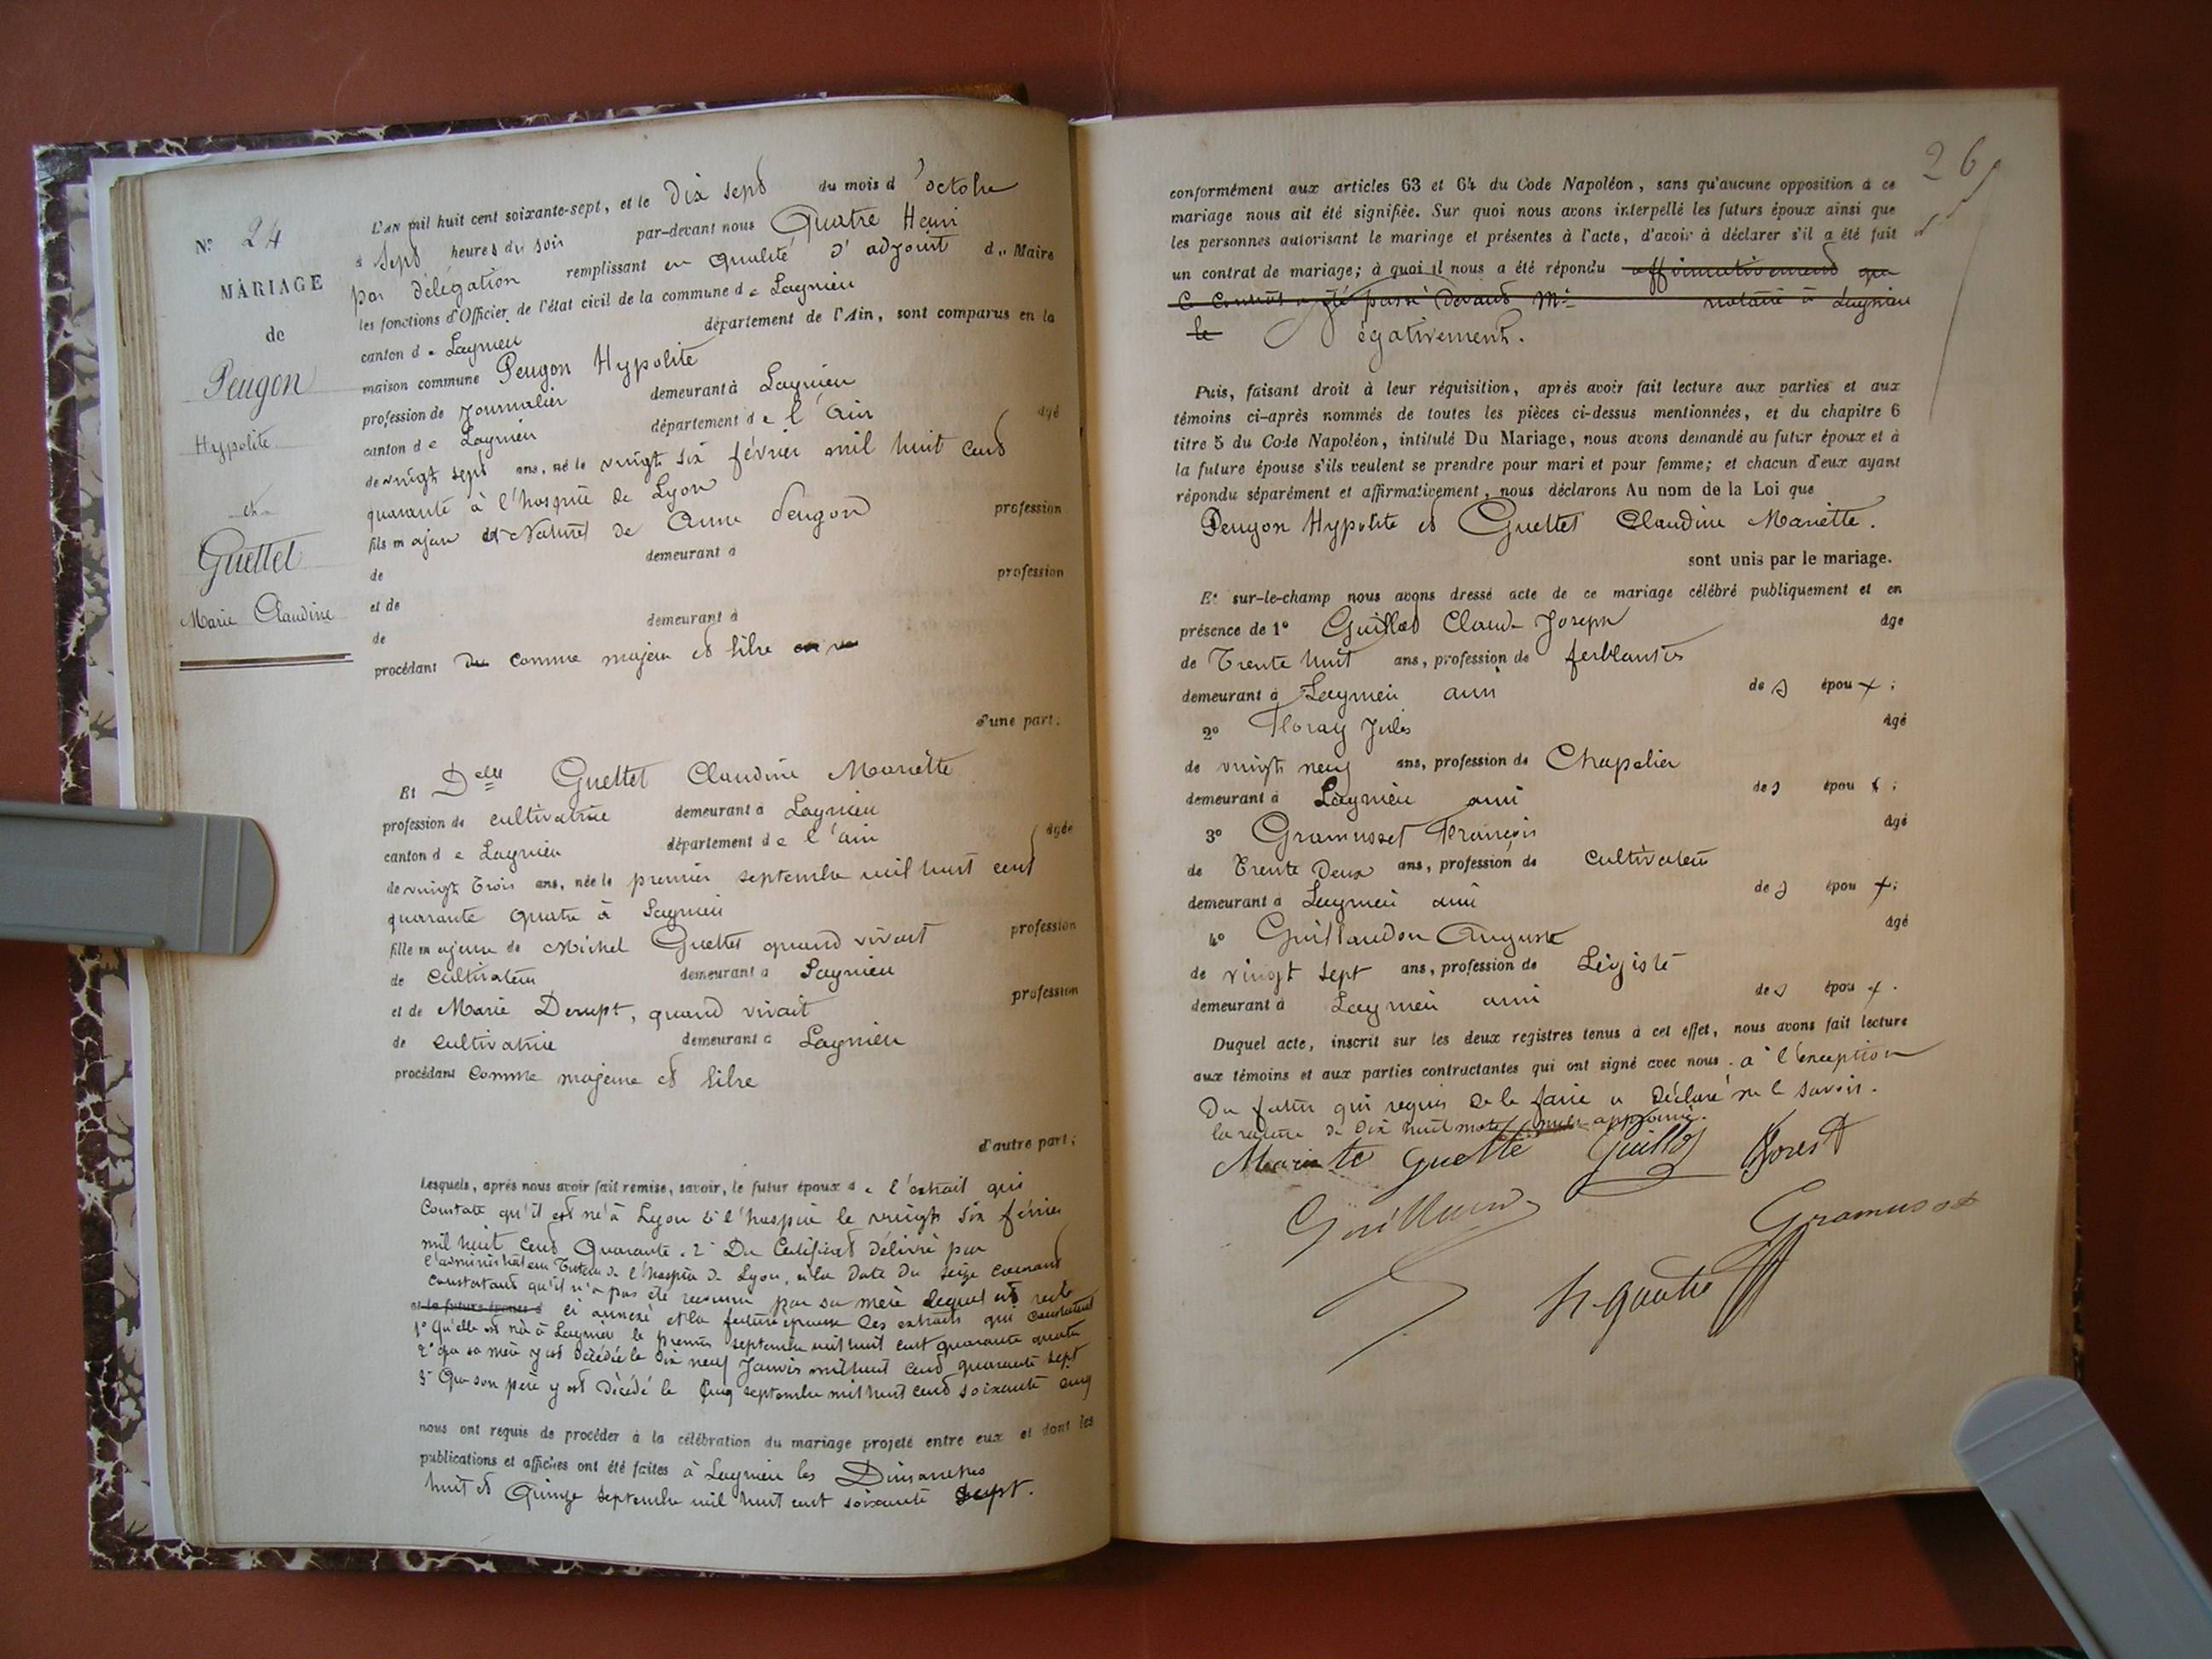 N° 24
MARIAGE
de
Peugon
Hypolite
et
Guettet
Marie Claudine
L'AN mil huit cent soixante-sept, et le Dix sept du mois d'octobre
à sept heures du soir par-devant nous Quatre Henri
par délégation remplissant en qualité d'adjoint du Maire
les fonctions d'Officier de l'état civil de la commune de Lagnieu
canton de Lagnieu département de l'Ain, sont comparus en la
maison commune Peugon Hypolite
profession de Journalier demeurant à Lagnieu
canton de Lagnieu département de l'Ain âgé
de vingt sept ans, né le vingt six février mil huit cent
quarante à l'hospice de Lyon
fils majeur et Naturel de Anne Peugon profession
de demeurant à
et de profession
de demeurant à
procédant comme majeur et libre
d'une part;
Et Delle Guettet Claudine Mariette
profession de cultivatrice demeurant à Lagnieu
canton de Lagnieu département de l'Ain âgée
de vingt trois ans, née le premier septembre mil huit cent
quarante quatre à Lagnieu
fille majeure de Michel Guettet quand vivait profession
de cultivateur demeurant à Lagnieu
et de Marie Derupt, quand vivait profession
de cultivatrice demeurant à Lagnieu
procédant comme majeure et libre
d'autre part;
Lesquels, après nous avoir fait remise, savoir, le futur époux de l'extrait qui
constate qu'il est né à Lyon à l'hospice le vingt six février
mil huit cent quarante. 2° Du Certificat délivré par
l'administrateur Tuteur de l'hospice de Lyon, à la date du seize courant
constatant qu'il n'a pas été reconnu par sa mère lequel est resté
et la future épouse d ci annexé et la future épouse des extraits qui constatent
1° Qu'elle est née à Lagnieu le premier septembre mil huit cent quarante quatre
2° que sa mère y est décédée le dix neuf Janvier mil huit cent quarante sept
3° Que son père y est décédé le cinq septembre mil huit cent soixante cinq
nous ont requis de procéder à la célébration du mariage projeté entre eux et dont les
publications et affiches ont été faites à Lagnieu les Dimanches
huit et Quinze septembre mil huit cent soixante sept.
26
conformément aux articles 63 et 64 du Code Napoléon, sans qu'aucune opposition à ce
mariage nous ait été signifiée. Sur quoi nous avons interpellé les futurs époux ainsi que
les personnes autorisant le mariage et présentes à l'acte, d'avoir à déclarer s'il a été fait
un contrat de mariage; à quoi il nous a été répondu affirmativement que
ce contrat a été passé devant Me notaire à Lagnieu
le négativement.
Puis, faisant droit à leur réquisition, après avoir fait lecture aux parties et aux
témoins ci-après nommés de toutes les pièces ci-dessus mentionnées, et du chapitre 6
titre 5 du Code Napoléon, intitulé Du Mariage, nous avons demandé au futur époux et à
la future épouse s'ils veulent se prendre pour mari et pour femme; et chacun d'eux ayant
répondu séparément et affirmativement, nous déclarons Au nom de la Loi que
Peugon Hypolite et Guettet Claudine Mariette.
sont unis par le mariage.
Et sur-le-champ nous avons dressé acte de ce mariage célébré publiquement et en
présence de 1° Guillot Claude Joseph âgé
de Trente huit ans, profession de ferblantier
demeurant à Lagnieu ami des époux;
2° Floray Jules âgé
de vingt neuf ans, profession de Chapelier
demeurant à Lagnieu ami des époux;
3° Gramusset François âgé
de Trente Deux ans, profession de cultivateur
demeurant à Lagnieu ami des époux;
4° Guillaudon Auguste âgé
de vingt sept ans, profession de Légiste
demeurant à Lagnieu ami des époux.
Duquel acte, inscrit sur les deux registres tenus à cet effet, nous avons fait lecture
aux témoins et aux parties contractantes qui ont signé avec nous. à l'exception
Du futur qui requis de le faire a déclaré ne le savoir.
la rature de dix huit mots nuls approuvée.
Mariette Guette Guillot
Gramusset